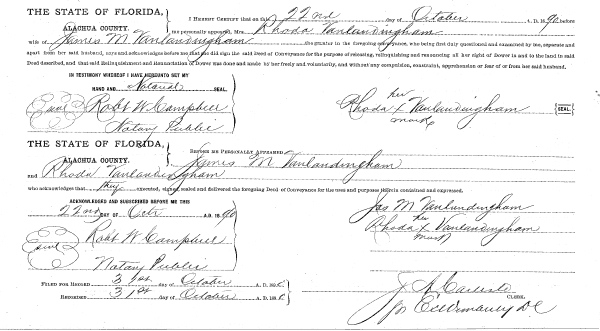 THE STATE OF FLORIDA,
ALACHUA COUNTY.
I HEREBY CERTIFY that on this 22nd day of October A. D. 1890, before
me personally appeared Mrs. Rhoda Vanlandingham
wife of James M Vanlandingham the grantor in the foregoing conveyance, who being by me first duly questioned and examined by me, separate and
apart from her said husband, did acknowledge before me that she did sign the said Deed of Conveyance for the purpose of releasing, relinquishing and renouncing all her right of Dower in and to the land in said
Deed described, and that said Relinquishment and Renunciation of Dower was done and made by her freely and voluntarily, and without any compulsion, constraint, apprehension or fear of or from her said husband.
IN TESTIMONY WHEREOF I HAVE HEREUNTO SET MY
HAND AND Notarial SEAL.
Seal Robt W Campbell
Notary Public
her
Rhoda x Vanlandingham SEAL.
mark
THE STATE OF FLORIDA,
ALACHUA COUNTY.
BEFORE ME PERSONALLY APPEARED James M Vanlandingham
and Rhoda Vanlandingham
who acknowledges that they executed, signed, sealed and delivered the foregoing Deed of Conveyance for the uses and purposes therein contained and expressed.
ACKNOWLEDGED AND SUBSCRIBED BEFORE ME THIS
22nd DAY OF Octr A. D. 1890
Seal Robt W Campbell
Notary Public
Jas M Vanlandingham
her
Rhoda x Vanlandingham
mark
FILED FOR RECORD 31st day of October A. D. 1890.
RECORDED 31st day of October A. D. 1890.
J A Carlisle
CLERK.
DC